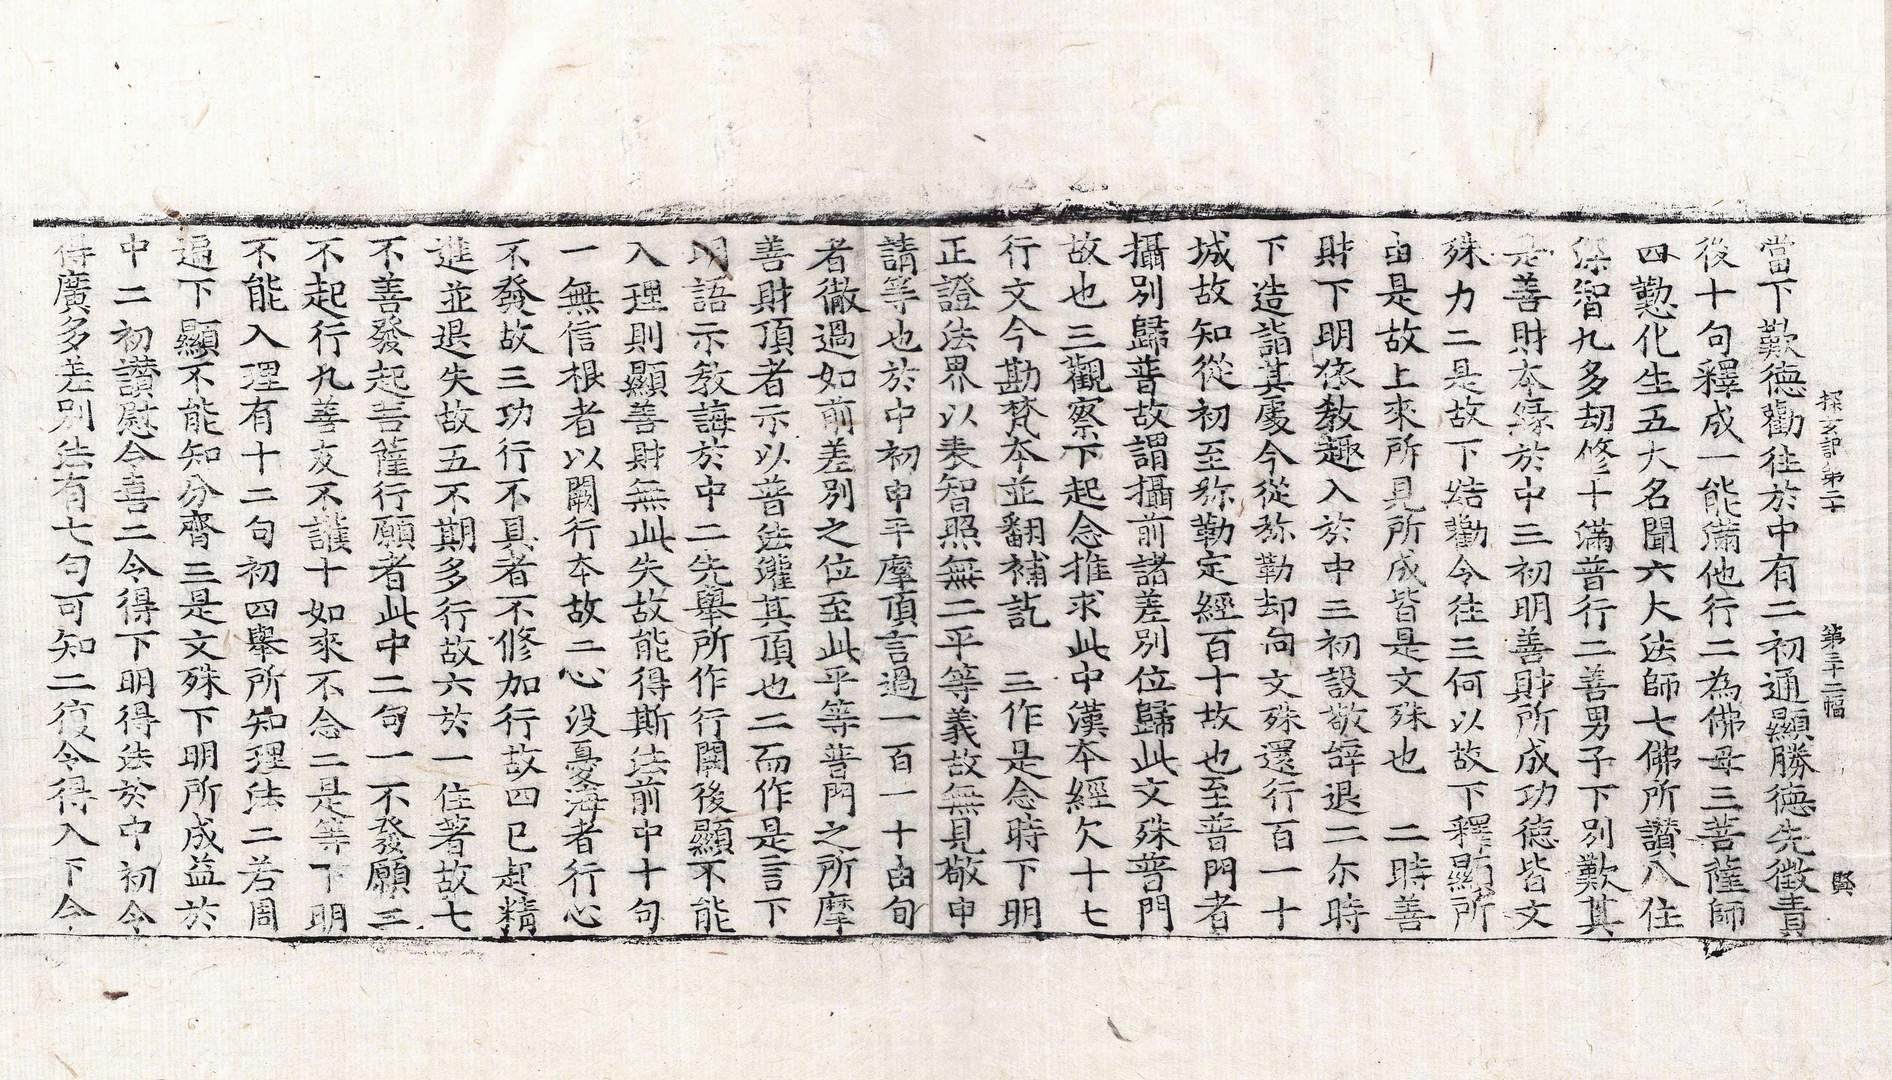 探玄記第二十　第三十二幅　賢
當下歎德勸往於中有二初通顯勝德先徵責
後十句釋成一能滿他行二為佛母三菩薩師
四懃化生五大名聞六大法師七佛所讚八住
深智九多劫修十滿普行二善男子下別歎其
是善財本緣於中三初明善財所成功德皆文
殊力二是故下結勸令往三何以故下釋顯所
由是故上來所見所成皆是文殊也　二時善
財下明依教趣入於中三初設敬辞退二尒時
下造詣其處今從弥勒却向文殊還行百一十
城故知從初至弥勒定經百十故也至普門者
攝別歸普故謂攝前諸差別位歸此文殊普門
故也三觀察下起念推求此中漢本經欠十七
行文今勘梵本並翻補訖　三作是念時下明
正證法界以表智照無二平等義故無見敬申
請等也於中初申手摩頂言過一百一十由旬
者徹過如前差別之位至此平等普門之所摩
善財頂者示以普法灌其頂也二而作是言下
明語示教誨於中二先舉所作行闕後顯不能
入理則顯善財無此失故能得斯法前中十句
一無信根者以闕行本故二心没憂海者行心
不發故三功行不具者不修加行故四已起精
進並退失故五不期多行故六於一住著故七
不善發起菩薩行願者此中二句一不發願二
不起行九善友不護十如來不念二是等下明
不能入理有十二句初四舉所知理法二若周
遍下顯不能知分齊三是文殊下明所成益於
中二初讚慰令喜二令得下明得法於中初令
得廣多差別法有七句可知二復令得入下令